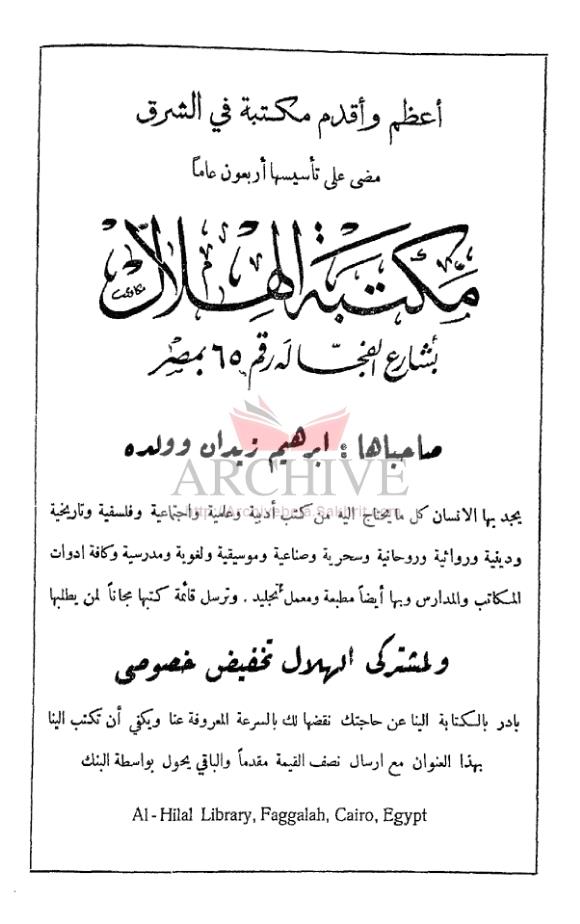 أعظم وأقدم مكتبة في الشرق
مضى على تأسيسها أربعون عاماً
مكتبة الهلال
بشارع الفجالة رقم ٦٥ بمصر
صاحباها : ابرهيم زيدان وولده
ARCHIVE
http://Archivebeta.Sakhrit.com
يجد بها الانسان كل ما يحتاج اليه من كتب أدبية وعلمية واجتماعية وفلسفية وتاريخية
ودينية وروائية وروحانية وسحرية وصناعية وموسيقية ولغوية ومدرسية وكافة ادوات
المكاتب والمدارس وبها أيضاً مطبعة ومعمل تجليد . وترسل قائمة كتبها مجاناً لمن يطلبها
ولمشتركى الهلال تخفيض خصوصى
بادر بالكتابة الينا عن حاجتك نقضها لك بالسرعة المعروفة عنا ويكفي أن تكتب الينا
بهذا العنوان مع ارسال نصف القيمة مقدماً والباقي يحول بواسطة البنك
Al-Hilal Library, Faggalah, Cairo, Egypt